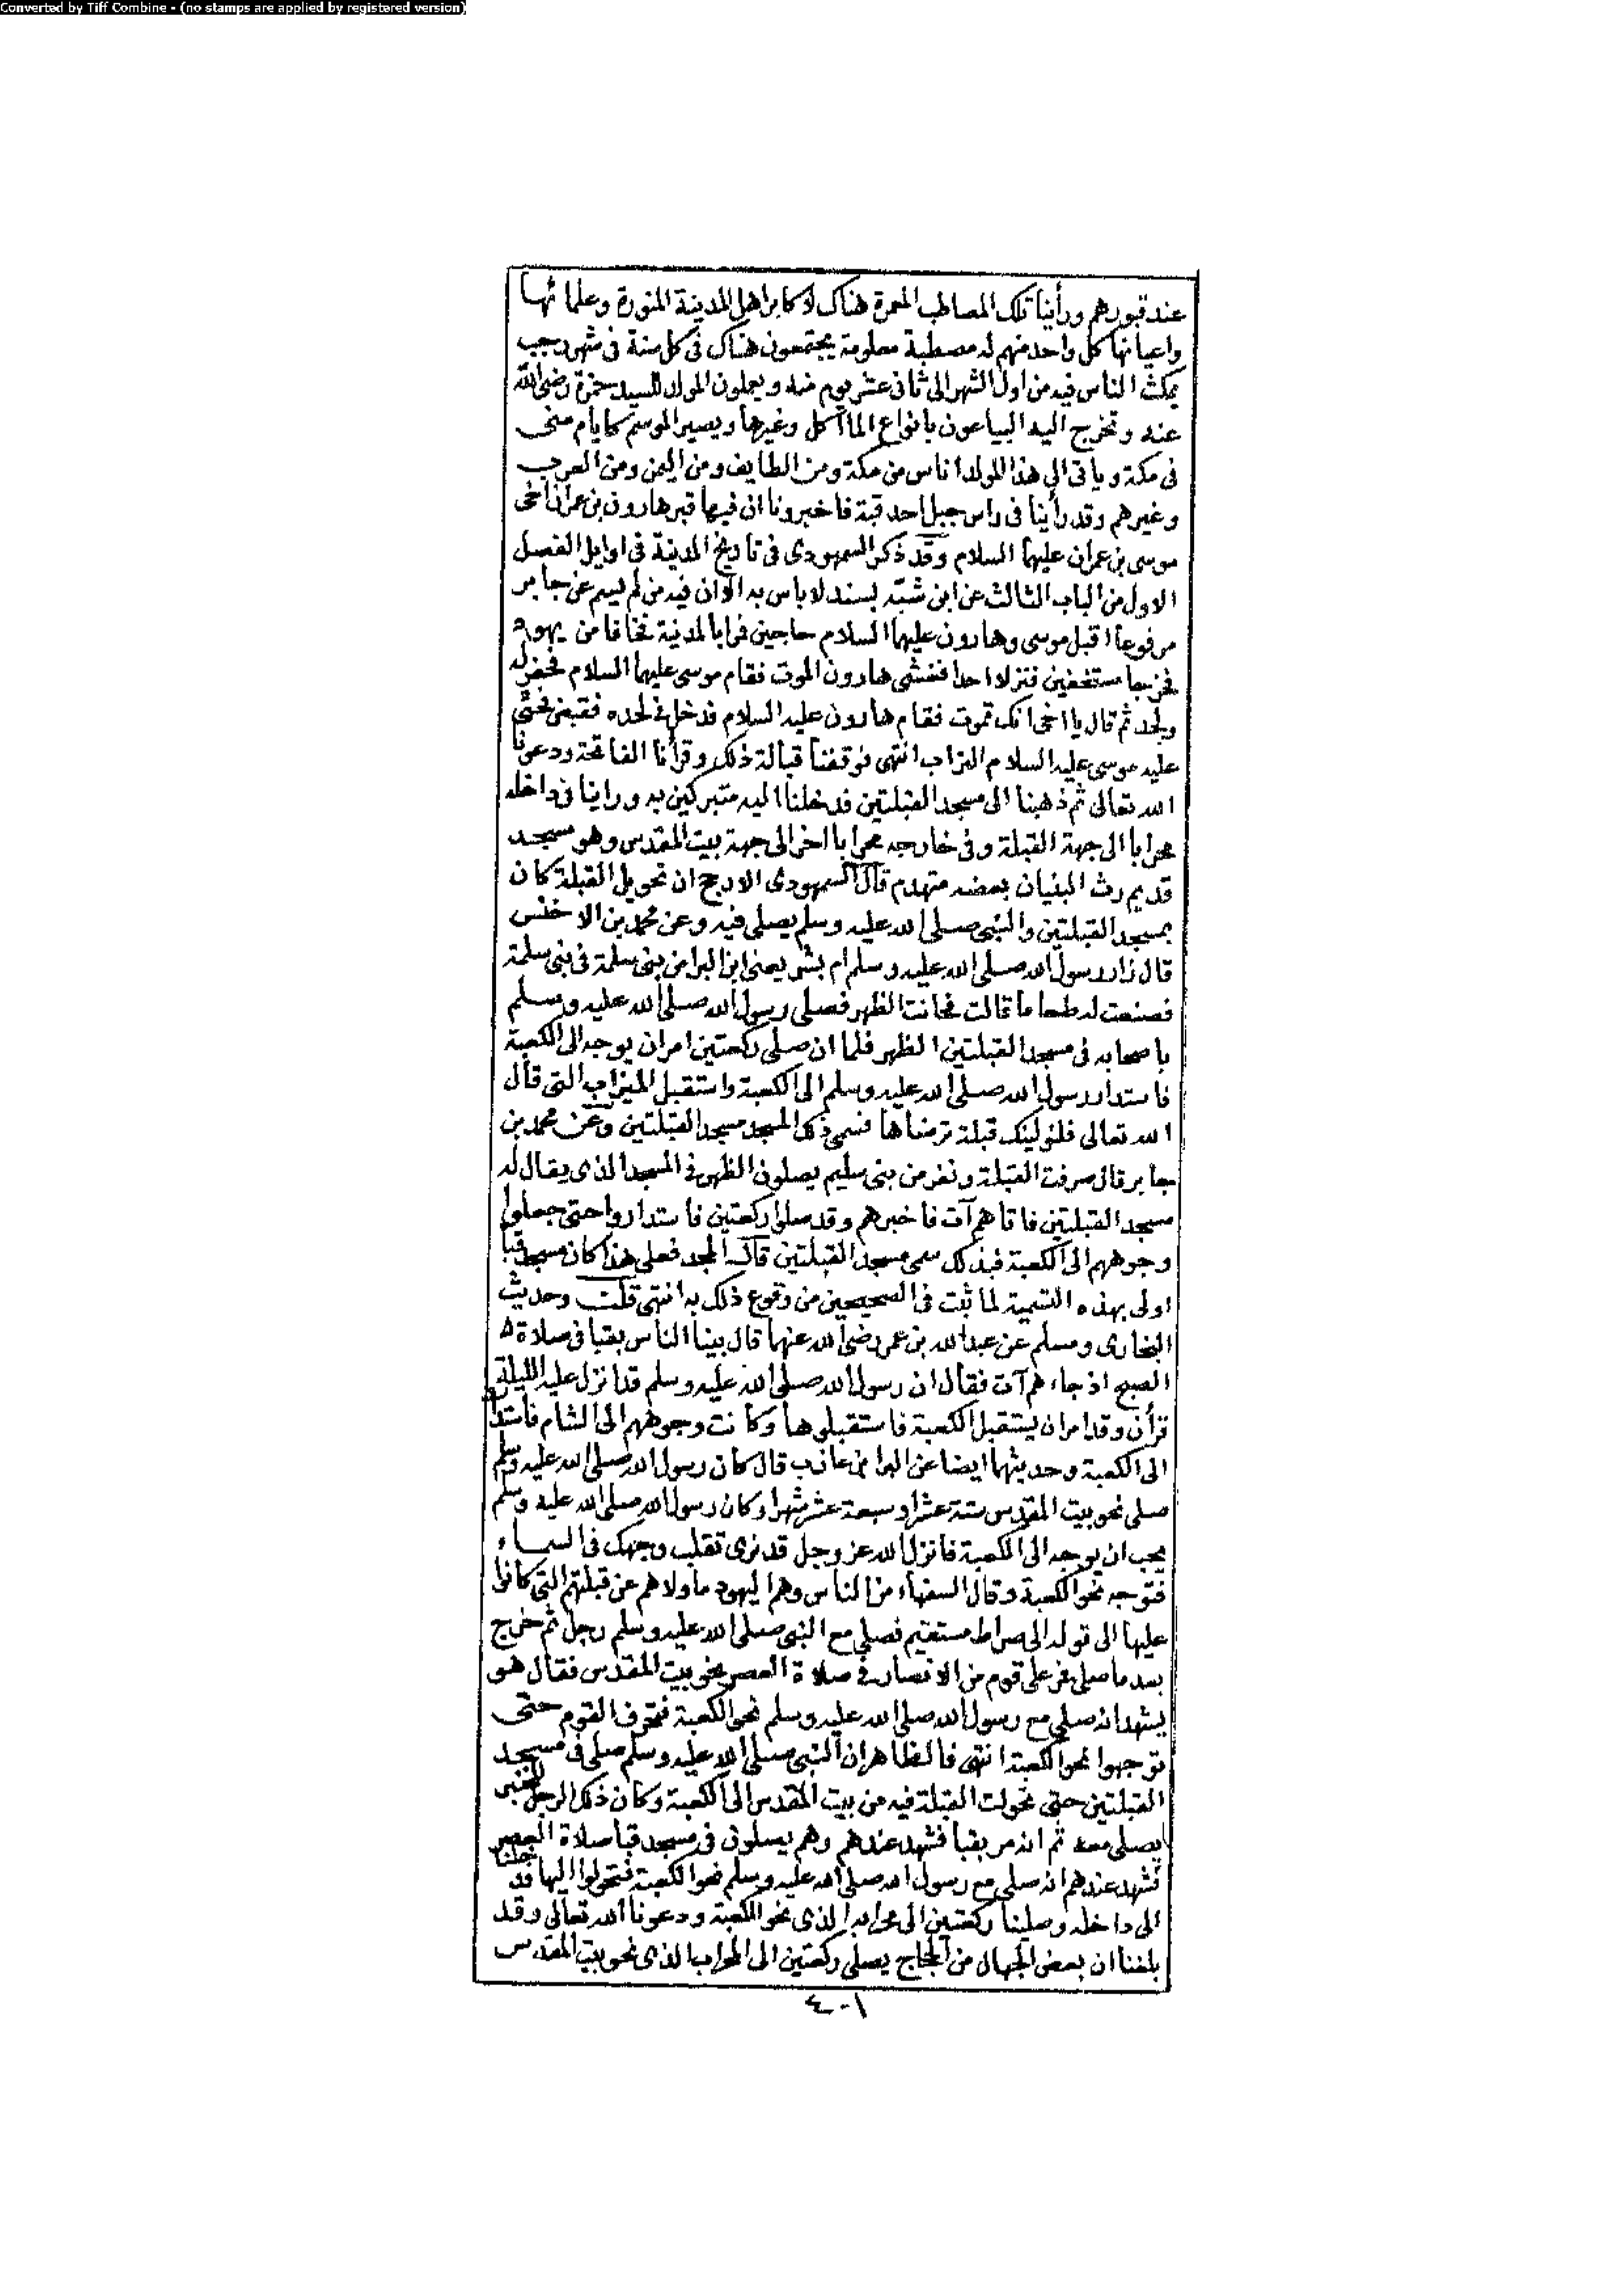 Converted by Tiff Combine - (no stamps are applied by registered version)
عند قبورهم ورأينا تلك المصاطب المعمرة هناك لاكابر اهل المدينة المنورة وعلمائها
واعيانها كل واحد منهم له مصطبة معلومة يجتمعون هناك فى كل سنة فى شهر رجب
يمكث الناس فيه من اول الشهر الى ثانى عشر يوم منه ويعملون المولد للسيد حمزة رضى الله
عنه وتخرج اليه البياعون بانواع المأاكل وغيرها ويصير الموسم كايام منى
فى مكة وياتى الى هذا المولد اناس من مكة ومن الطايف ومن اليمن ومن العرب
وغيرهم وقد رأينا فى راس جبل احد قبة فاخبرونا ان فيها قبر هارون بن عمران اخى
موسى بن عمران عليهما السلام وقد ذكر السمهودى فى تاريخ المدينة فى اوايل الفصل
الاول من الباب الثالث عن ابن شبّه بسند لا باس به الا ان فيه من لم يسم عن جابر
مرفوعا اقبل موسى وهارون عليهما السلام حاجين فمرا بالمدينة فخافا من يهود
فخرجا مستخفين فنزلا احدا فغشى هارون الموت فقام موسى عليهما السلام فحفر له
ولحد ثم قال يا اخى انك تموت فقام هارون عليه السلام فدخل فى لحده فقبض فحثى
عليه موسى عليه السلام التراب انتهى فوقفنا قبالة ذلك وقرأنا الفاتحة ودعونا
الله تعالى ثم ذهبنا الى مسجد القبلتين فدخلنا اليه متبركين به وراينا فى داخله
محرابا الى جهة القبلة وفى خارجه محرابا اخر الى جهة بيت المقدس وهو مسجد
قديم رث البنيان بعضه متهدم قال السمهودى الارجح ان تحويل القبلة كان
بمسجد القبلتين والنبى صلى الله عليه وسلم يصلى فيه وعن محمد بن الاخنس
قال زار رسول الله صلى الله عليه وسلم ام بشر يعنى ابن البرا من بنى سلمة فى بنى سلمة
فصنعت له طعاما قالت فحانت الظهر فصلى رسول الله صلى الله عليه وسلم
باصحابه فى مسجد القبلتين الظهر فلما ان صلى ركعتين امر ان يوجه الى الكعبة
فاستدار رسول الله صلى الله عليه وسلم الى الكعبة واستقبل الميزاب التى قال
الله تعالى فلنولينك قبلة ترضاها فسمى ذلك المسجد مسجد القبلتين وعن محمد بن
جابر قال صرفت القبلة ونفر من بنى سليم يصلون الظهر فى المسجد الذى يقال له
مسجد القبلتين فاتاهم آت فاخبرهم وقد صلوا ركعتين فاستداروا حتى جعلوا
وجوههم الى الكعبة فبذلك سمى مسجد القبلتين قال المجد فعلى هذا كان مسجد قبا
اولى بهذه التسمية لما ثبت فى الصحيحين من وقوع ذلك به انتهى قلت وحديث
البخارى ومسلم عن عبد الله بن عمر رضى الله عنهما قال بينا الناس بقبا فى صلاة
الصبح اذ جاءهم آت فقال ان رسول الله صلى الله عليه وسلم قد انزل عليه الليلة
قرأن وقد امر ان يستقبل الكعبة فاستقبلوها وكانت وجوههم الى الشام فاستدا
الى الكعبة وحديثهما ايضا عن البرا بن عازب قال كان رسول الله صلى الله عليه وسلم
صلى نحو بيت المقدس ستة عشر او سبعة عشر شهرا وكان رسول الله صلى الله عليه وسلم
يحب ان يوجه الى الكعبة فانزل الله عز وجل قد نرى تقلب وجهك فى السماء
فتوجه نحو الكعبة وقال السفهاء من الناس وهم اليهود ماولاهم عن قبلتهم التى كانوا
عليها الى قوله الى صراط مستقيم فصلى مع النبى صلى الله عليه وسلم رجل ثم خرج
بعد ما صلى فمر على قوم من الانصار فى صلاة العصر نحو بيت المقدس فقال هو
يشهد انه صلى مع رسول الله صلى الله عليه وسلم نحو الكعبة فتحرف القوم حتى
توجهوا نحو الكعبة انتهى فالظاهر ان النبى صلى الله عليه وسلم صلى فى مسجد
القبلتين حتى تحولت القبلة فيه من بيت المقدس الى الكعبة وكان ذلك الرجل المخبر
يصلى معه ثم انه مر بقبا فشهد عندهم وهم يصلون فى مسجد قبا صلاة العصر
فشهد عندهم انه صلى مع رسول الله صلى الله عليه وسلم نحو الكعبة فتحولوا اليها فدخلنا
الى داخله وصلينا ركعتين الى محرابه الذى نحو الكعبة ودعونا الله تعالى وقد
بلغنا ان بعض الجهال من الحجاج يصلى ركعتين الى المحراب الذى نحو بيت المقدس
٤٠١